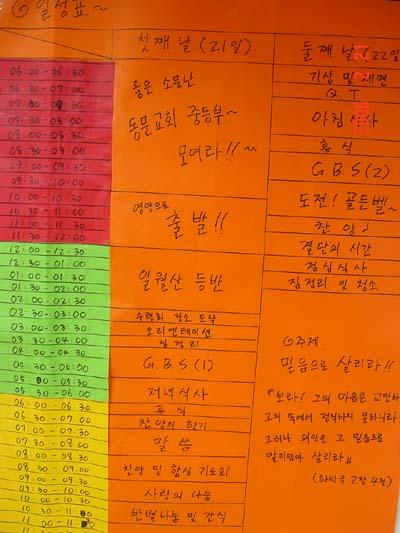 ◎일정표~
첫째 날 (21일)
둘째 날 (22일)
06:00 - 06:30
06:30 - 07:00
07:00 - 07:30
07:30 - 08:00
08:00 - 08:30
08:30 - 09:00
09:00 - 09:30
09:30 - 10:00
10:00 - 10:30
10:30 - 11:00
11:00 - 11:30
11:30 - 12:00
12:00 - 12:30
12:30 - 01:00
01:00 - 01:30
01:30 - 02:00
02:00 - 02:30
02:30 - 03:00
03:00 - 03:30
03:30 - 04:00
04:00 - 04:30
04:30 - 05:00
05:00 - 05:30
05:30 - 06:00
06:00 - 06:30
06:30 - 07:00
07:00 - 07:30
07:30 - 08:00
08:00 - 08:30
08:30 - 09:00
09:00 - 09:30
09:30 - 10:00
10:00 - 10:30
10:30 - 11:00
11:00 - 11:30
좋은 소문난
동문교회 중등부~
모여라!!
영양으로
출발!!
일월산 등반
수련회 장소 도착
오리엔테이션
짐정리
G.B.S (1)
저녁식사
휴식
찬양의 향기
말씀
찬양 및 합심 기도회
사랑의 나눔
반별나눔 및 간식
기상 및 세면
Q.T
아침식사
휴식
G.B.S (2)
도전! 골든벨~
찬양♩
결단의 시간
점심식사
짐정리 및 청소
◎주제
믿음으로 살리라!!
"보라! 그의 마음은 교만하며
그의 속에서 정직하지 못하니라.
그러나 의인은 그 믿음으로
말미암아 살리라"
(하박국 2장 4절)